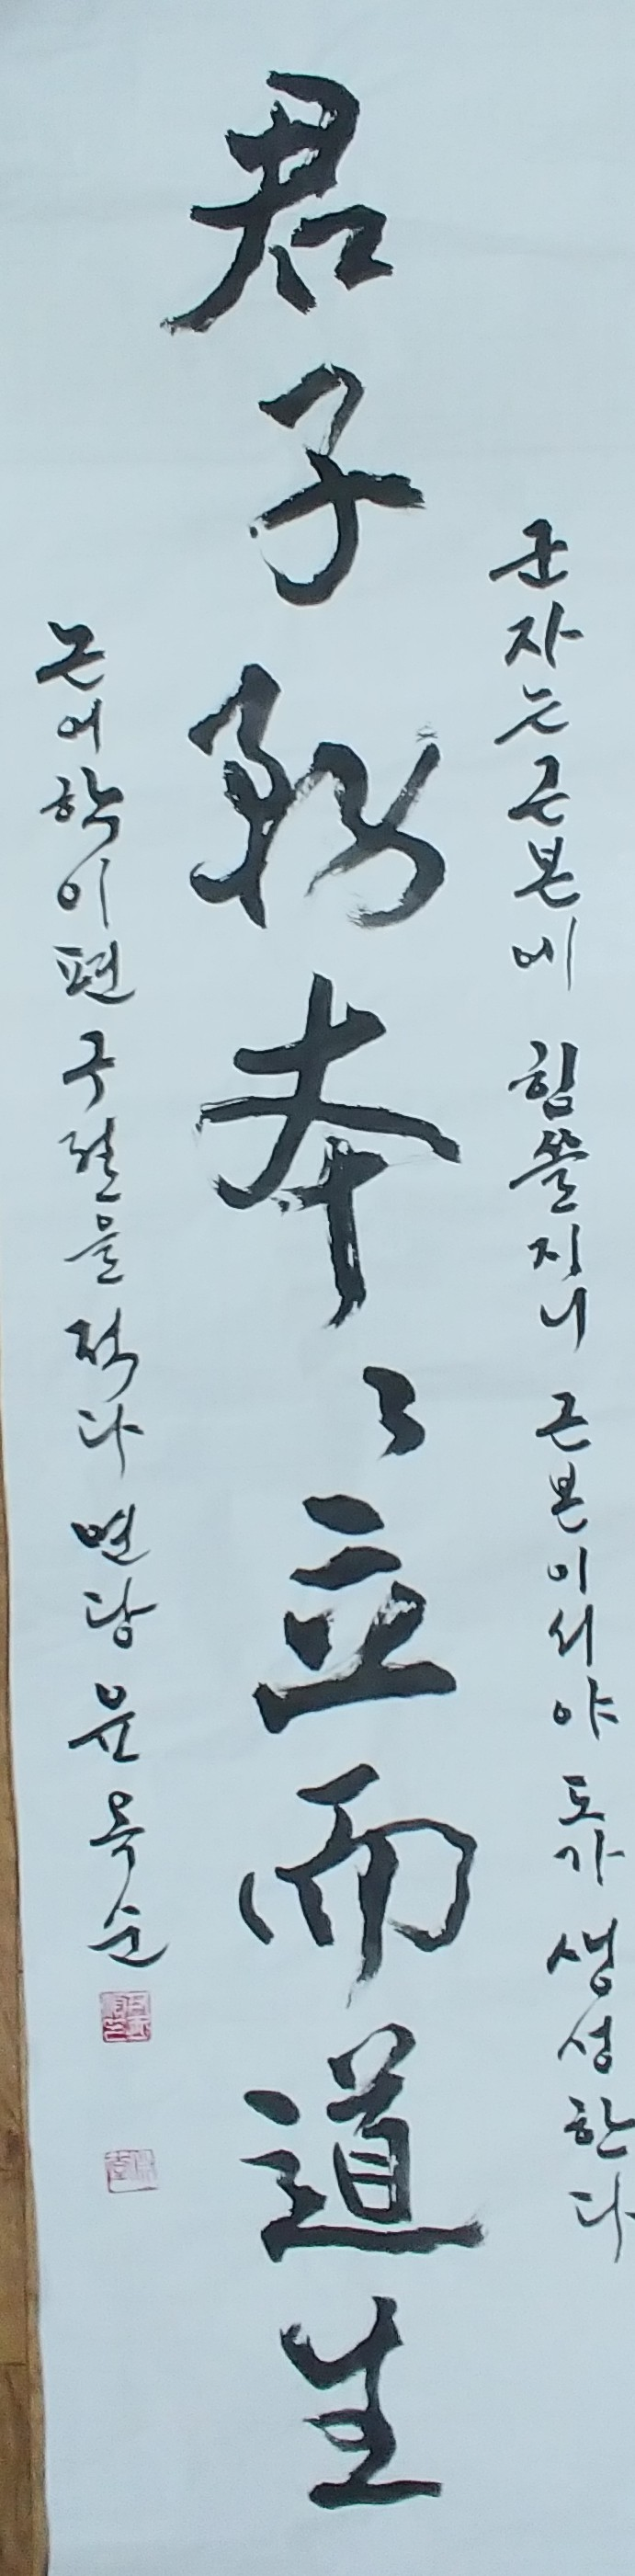 군자는근본에 힘쓸지니 근본이서야 도가 생성한다
君子務本〻立而道生
논어학이편 구절을 적다 면당 윤옥순